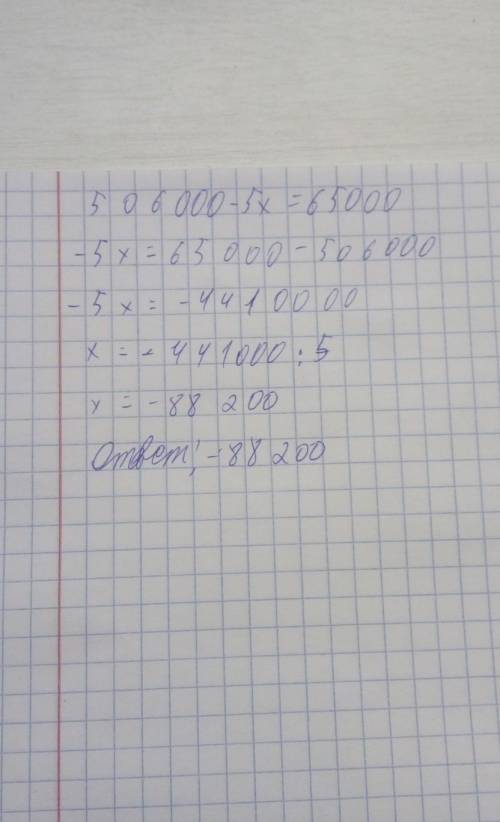 506000-5x=65000
-5x=65000-506000
-5x=-4410000
x=-441000:5
x=-88 200
Ответ: -88 200